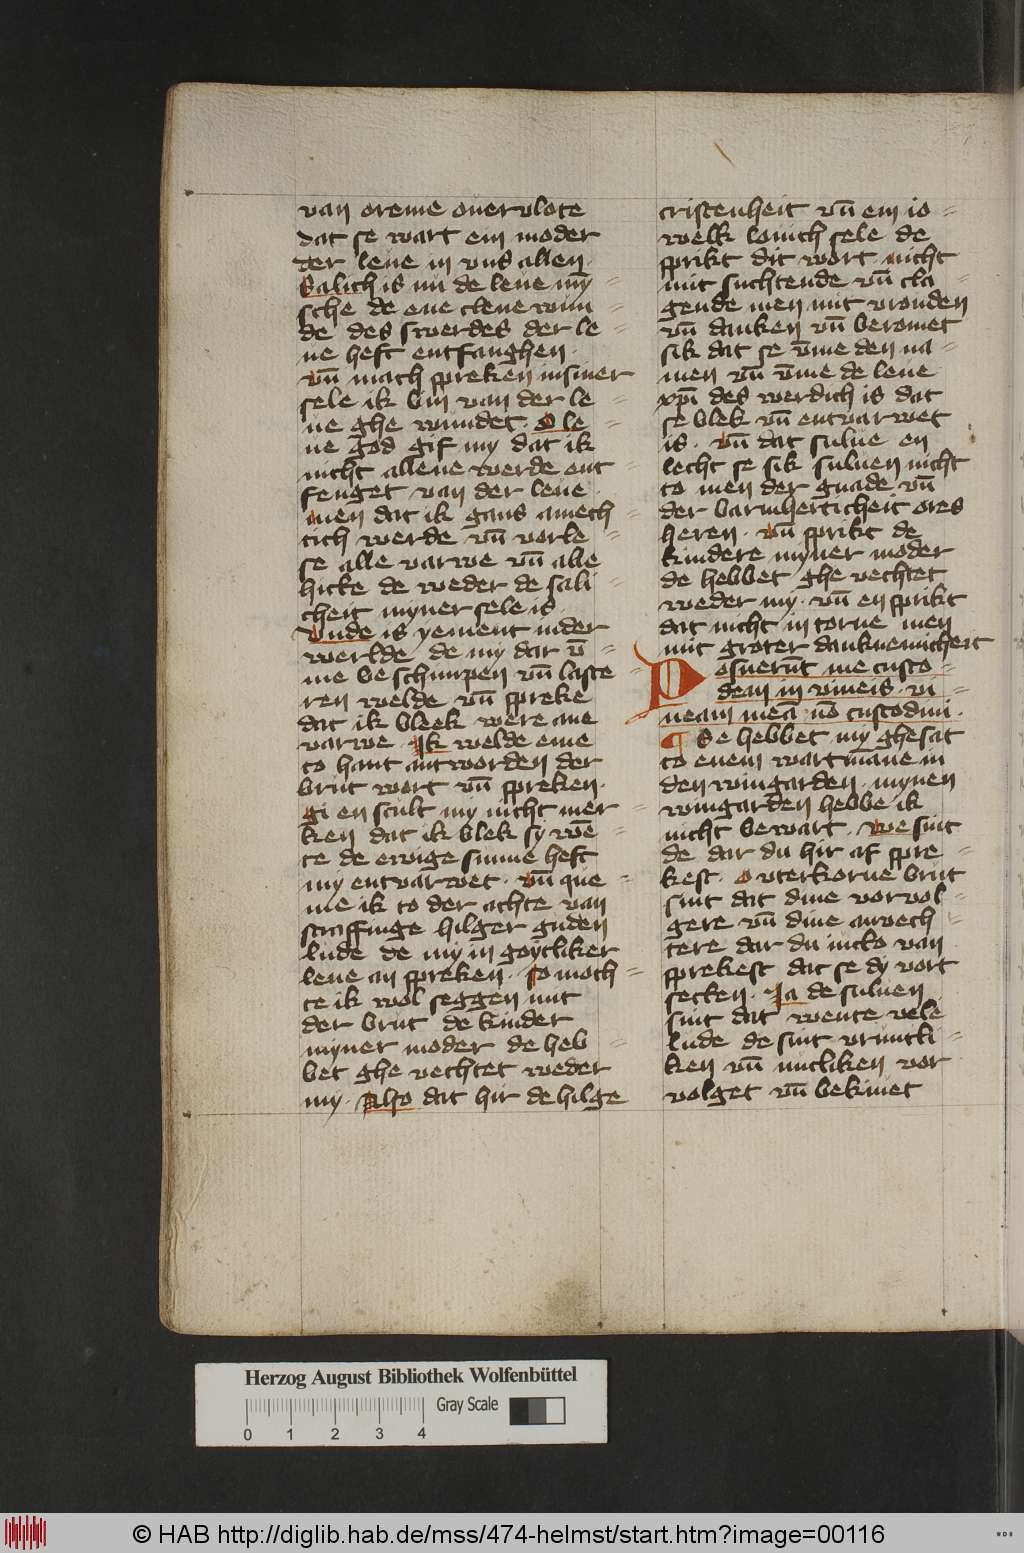 van oreme ouervlote
dat se wart ein moder
der leue in vns allen.
Salich is nu de leue my̅ =
sche de ene clene wun =
de des swerdes der le =
ue heft entfanghen.
vn̅ mach spreken in siner
sele ik bin van der le =
ue ghe wundet. O le =
ue god gif my dat ik
nicht allene werde ent =
fenget van der leue.
men dat ik gans amech =
tich werde vn̅ vorle =
se alle varwe vn̅ alle
hicke de weder de sali =
cheit myner sele is.
Vnde is yement in der
werlde de my dar v̅ =
me beschimpen vn̅ laste =
ren welde vn̅ spreke
dat ik bleek were ane
varwe. Ik welde eme
to hant antworden der
brut wort vn̅ spreken.
gi en scult my nicht mer =
ken dat ik blek sy we̅ =
te de ewige sunne heft
my entvarwet. vn̅ que =
me ik to der achte van
straffinge hilger guden
lude de my in goytliker
leue an spreken. so moch =
te ik wol seggen mit
der brut de kinder
myner moder de heb =
bet ghe vechtet weder
my. Also dat hir de hilge
cristenheit vn̅ ein io =
welk louich sele de
sprikt dit wort nicht
mit suchtende vn̅ cla =
gende men mit vrouden
vn̅ danken vn̅ beromet
sik dat se v̅me den na =
men vn̅ v̅me de leue
xp̅i des werdich is dat
se blek vn̅ entvarwet
is. vn̅ dat sulue en
lecht se sik suluen nicht
to men der gnade vn̅
der barmherticheit ores
heren. vn̅ sprikt de
kindere myner moder
de hebbet ghe vechtet
weder my. vn̅ en sprikt
dat nicht in torne men
mit groter danknemicheit
Posueru̅t me custo =
dem in vineis. vi =
neam mea̅ no̅ custodiui.
¶ Se hebbet my ghesat
to enem wartmanne in
den wingarden. mynen
wingarden hebbe ik
nicht bewart. We sint
de dar du hir af spre =
kest. O vterkorne brut
sint dat dine vorvol =
gere vn̅ dine anvech =
tere dar du nicko van
sprekest dat se dy vort
secken. Ja de suluen
sint dat wente vele
lude de sint vruntli =
ken vn̅ nutliken vor
volget vn̅ bekinet
Herzog August Bibliothek Wolfenbüttel
0 1 2 3 4
Gray Scale
© HAB http://diglib.hab.de/mss/474-helmst/start.htm?image=00116